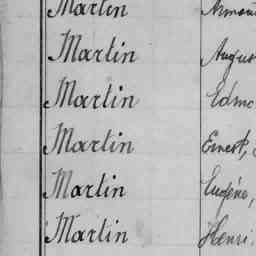 Martin Armand
Martin August
Martin Edmo
Martin Ernest,
Martin Eugène,
Martin Henri.